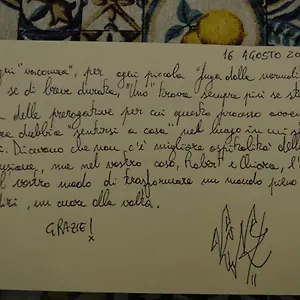 16 AGOSTO 20
ogni "vacanza", per ogni piccola "fuga dalla normali
se di breve durata, "Uno" trova sempre più se st
delle prerogative per cui questo processo avven
debba "sentirsi a casa" nel luogo in cui s
Dicevano che non c'è migliore ospitalità dell
ma nel vostro caso, Robert e Chiara, l'
vostro modo di trasformare un mondo pieno
, un cuore alla volta.
GRAZIE!